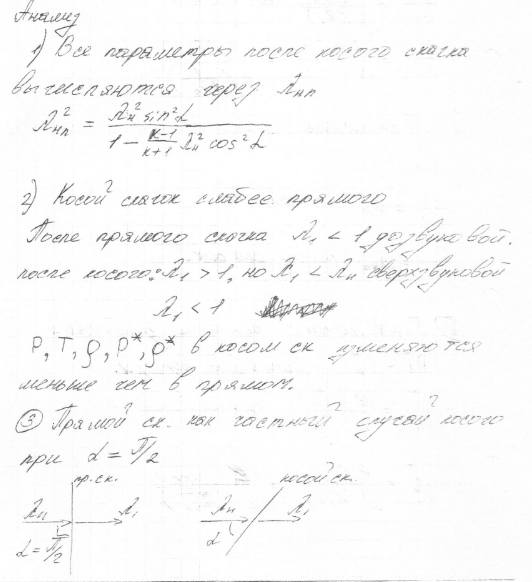 Анализ
1) Все параметры после косого скачка
вычисляются через λнп
λнп² = λн² sin² α / (1 − (k−1)/(k+1) λн² cos² α)
2) Косой скачок слабее прямого
После прямого скачка λ₁ < 1 дозвуковой.
после косого: λ₁ > 1, но λ₁ < λн сверхзвуковой
λ₁ < 1
P, T, ρ, P*, ρ* в косом ск изменяются
меньше чем в прямом.
③ Прямой ск. как частный случай косого
при α = π/2
пр. ск. косой ск.
λн λ₁ λн λ₁
α = π/2 α